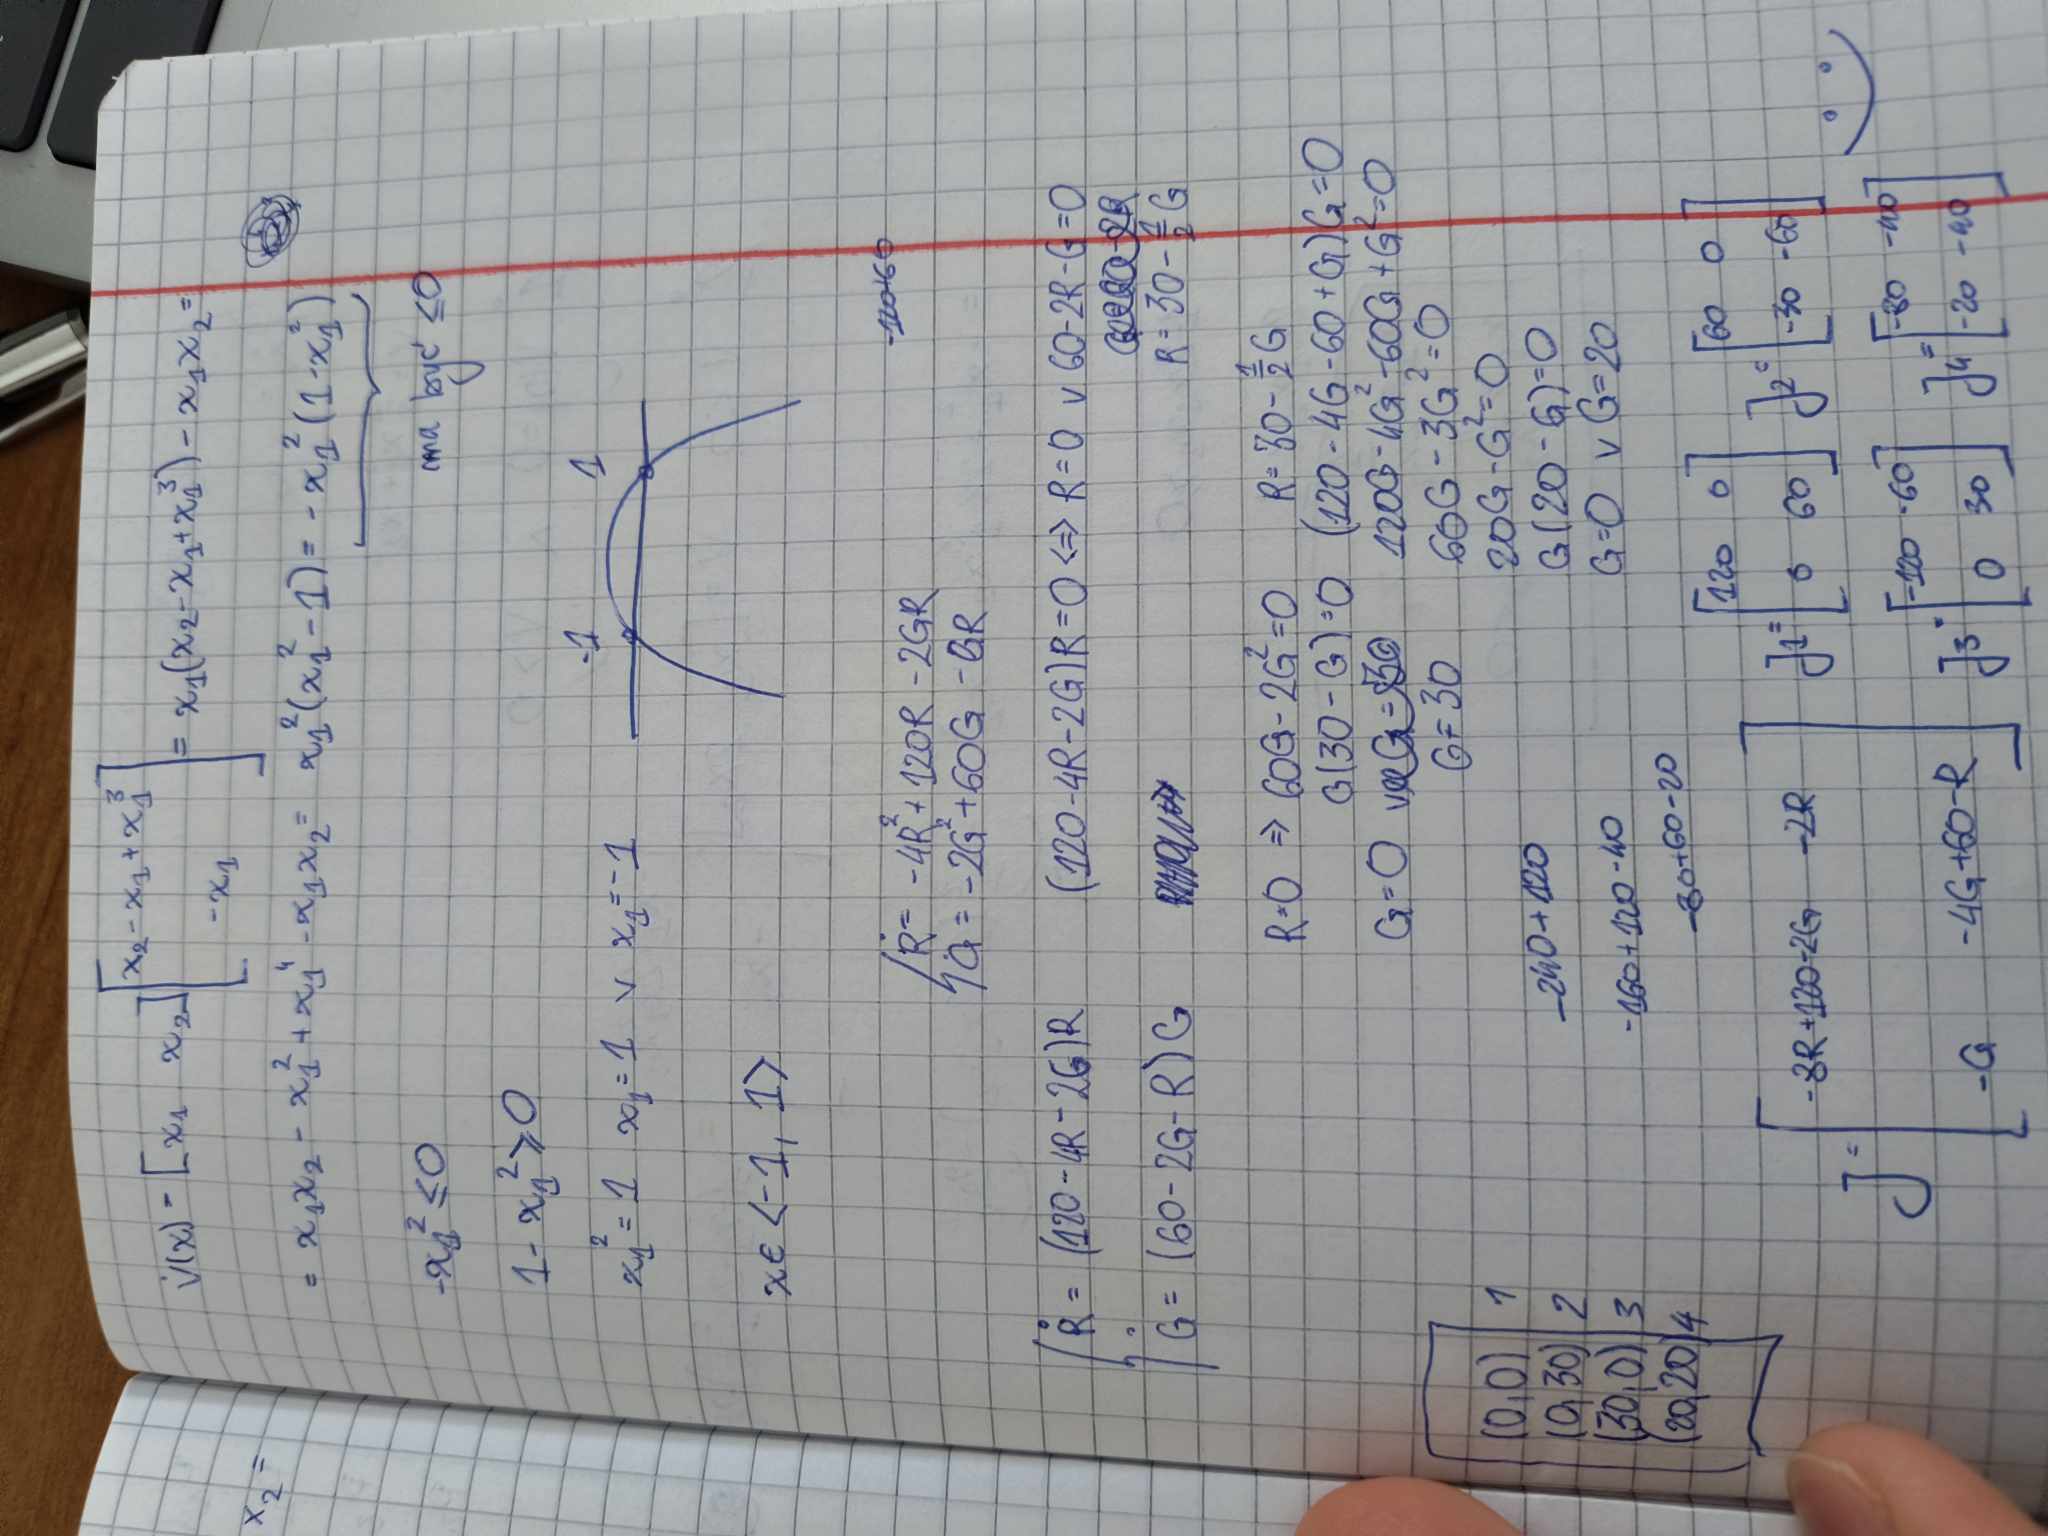 V̇(x) = [x₁ x₂] [x₂ - x₁ + x₁³
-x₁] = x₁(x₂ - x₁ + x₁³) - x₁x₂ =
= x₁x₂ - x₁² + x₁⁴ - x₁x₂ = x₁²(x₁² - 1) = -x₁²(1 - x₁²)
ma być ≤0
-x₁² ≤0
1 - x₁² ≥0
x₁² = 1 x₁ = 1 ∨ x₁ = -1
-1 1
x∈<-1, 1>
-120+60
Ṙ = -4R² + 120R - 2GR
Ġ = -2G² + 60G - GR
Ṙ = (120 - 4R - 2G)R
Ġ = (60 - 2G - R)G
(120 - 4R - 2G)R = 0 <=> R = 0 ∨ 60 - 2R - G = 0
R = 30 - ½G
R=0 => 60G - 2G² = 0
G(30 - G) = 0
G=0 ∨ G = 30
G = 30
R = 30 - ½G
(120 - 4G - 60 + G)G = 0
120G - 4G² - 60G + G² = 0
60G - 3G² = 0
20G - G² = 0
G(20 - G) = 0
G = 0 ∨ G = 20
(0,0) 1
(0,30) 2
(30,0) 3
(20,20) 4
-240+120
-160+120-40
-80+60-20
J = [-8R+120-2G -2R
-G -4G+60-R]
J₁ = [120 0
0 60]
J₂ = [60 0
-30 -60]
J₃ = [-120 -60
0 30]
J₄ = [-80 -40
-20 -40]
x₂ =